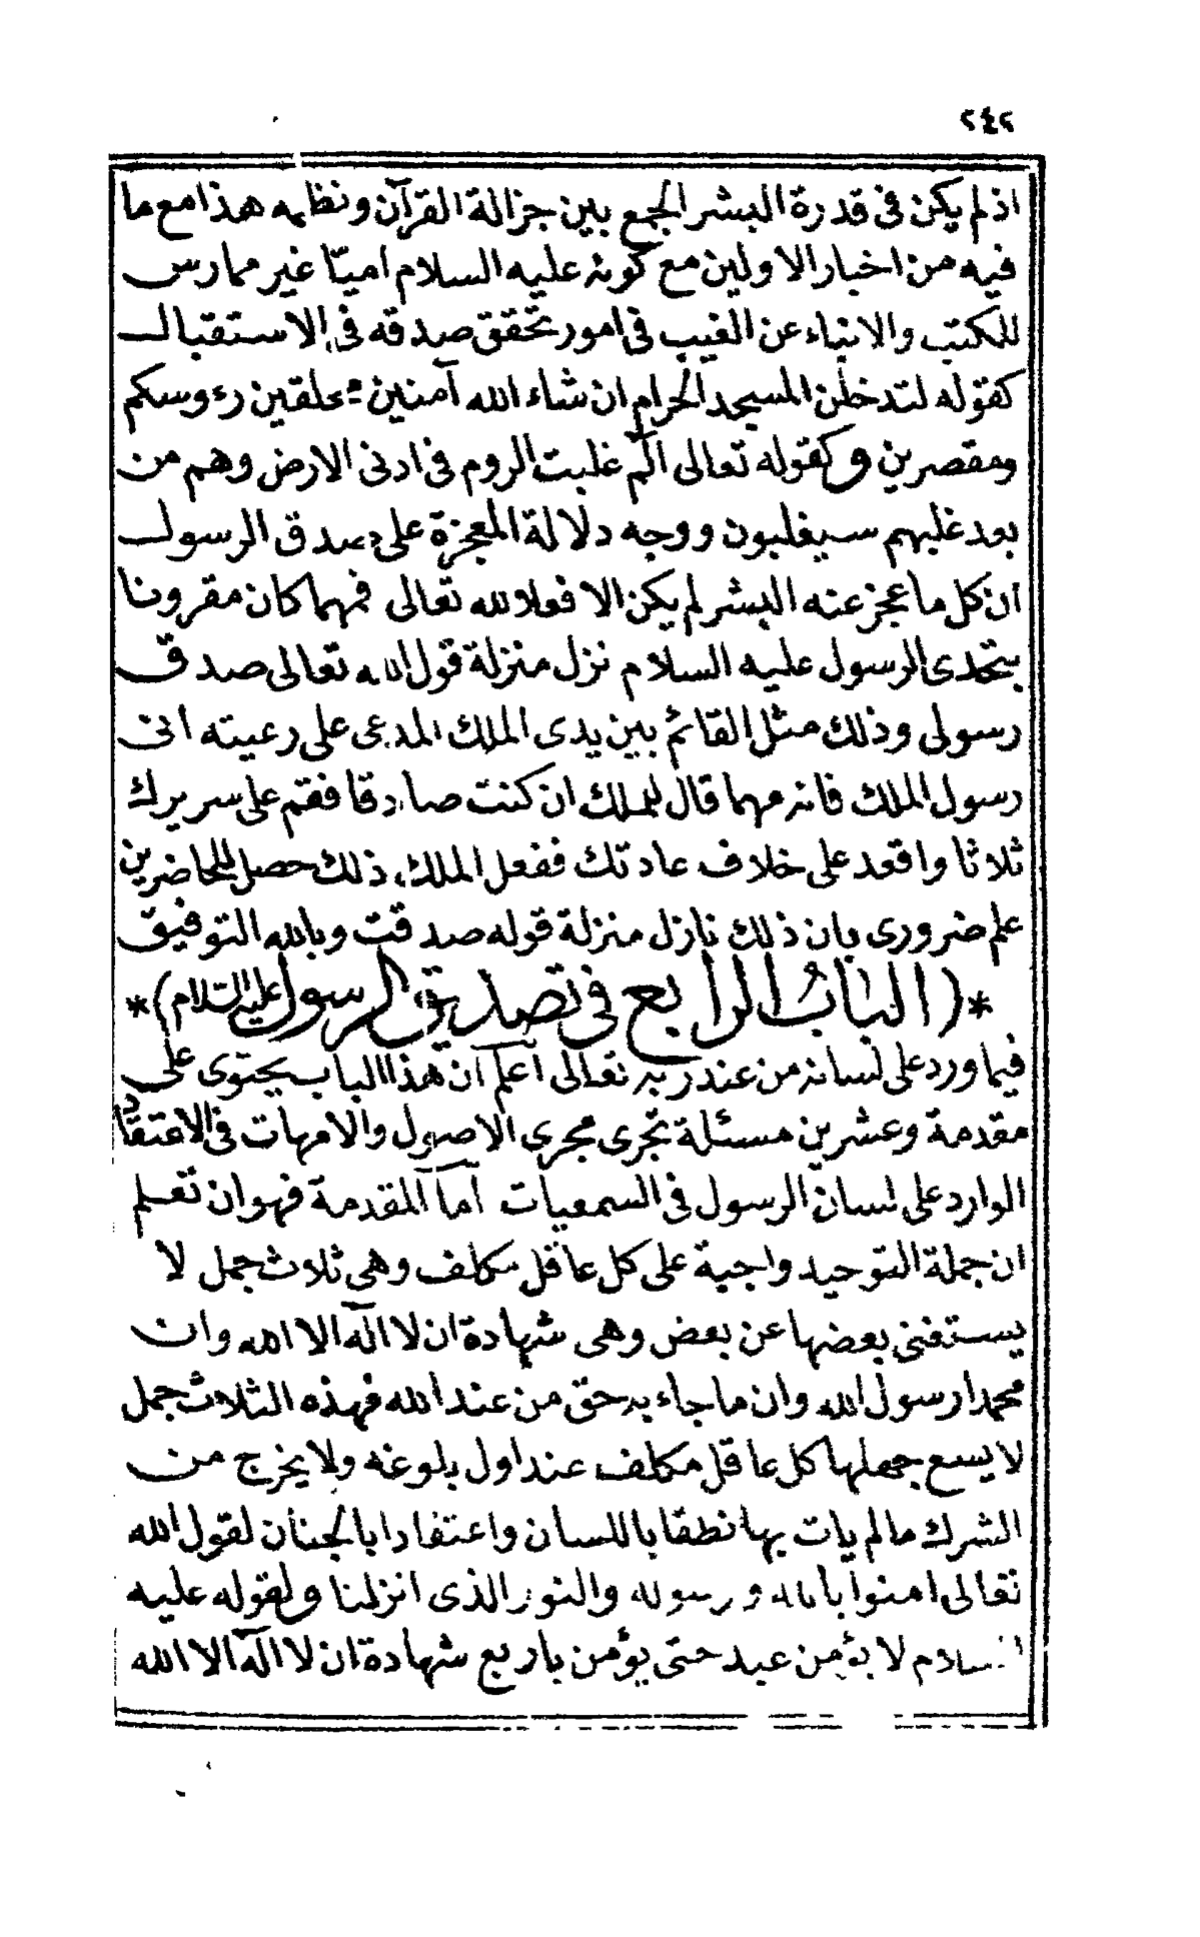 ٢٤٢
اذ لم يكن فى قدرة البشر الجمع بين جزالة القرآن ونظمه هذا مع ما
فيه من اخبار الاولين مع كونه عليه السلام اميّا غير ممارس
للكتب والانباء عن الغيب فى امور تحقق صدقه فى الاستقبال
كقوله لتدخلن المسجد الحرام ان شاء الله آمنين محلقين رءوسكم
ومقصرين وكقوله تعالى الٓم غلبت الروم فى ادنى الارض وهم من
بعد غلبهم سيغلبون ووجه دلالة المعجزة على صدق الرسول
ان كل ما عجز عنه البشر لم يكن الا فعلا لله تعالى فمهما كان مقرونا
بتحدى الرسول عليه السلام نزل منزلة قول الله تعالى صدق
رسولى وذلك مثل القائم بين يدى الملك المدعى على رعيته انى
رسول الملك فانه مهما قال للملك ان كنت صادقا فقم على سريرك
ثلاثا واقعد على خلاف عادتك ففعل الملك ذلك حصل للحاضرين
علم ضرورى بان ذلك نازل منزلة قوله صدقت وبالله التوفيق
*(الباب الرابع فى تصديق الرسول عليه السلام)*
فيما ورد على لسانه من عند ربه تعالى اعلم ان هذا الباب يحتوى على
مقدمة وعشرين مسئلة تجرى مجرى الاصول والامهات فى الاعتقاد
الوارد على لسان الرسول فى السمعيات اما المقدمة فهو ان تعلم
ان جملة التوحيد واجبة على كل عاقل مكلف وهى ثلاث جمل لا
يستغنى بعضها عن بعض وهى شهادة ان لا اله الا الله وان
محمدا رسول الله وان ما جاء به حق من عند الله فهذه الثلاث جمل
لا يسع جهلها كل عاقل مكلف عند اول بلوغه ولا يخرج من
الشرك ما لم يات بها نطقا باللسان واعتقادا بالجنان لقول الله
تعالى امنوا بالله ورسوله والنور الذى انزلنا ولقوله عليه
السلام لا يؤمن عبد حتى يؤمن باربع شهادة ان لا اله الا الله